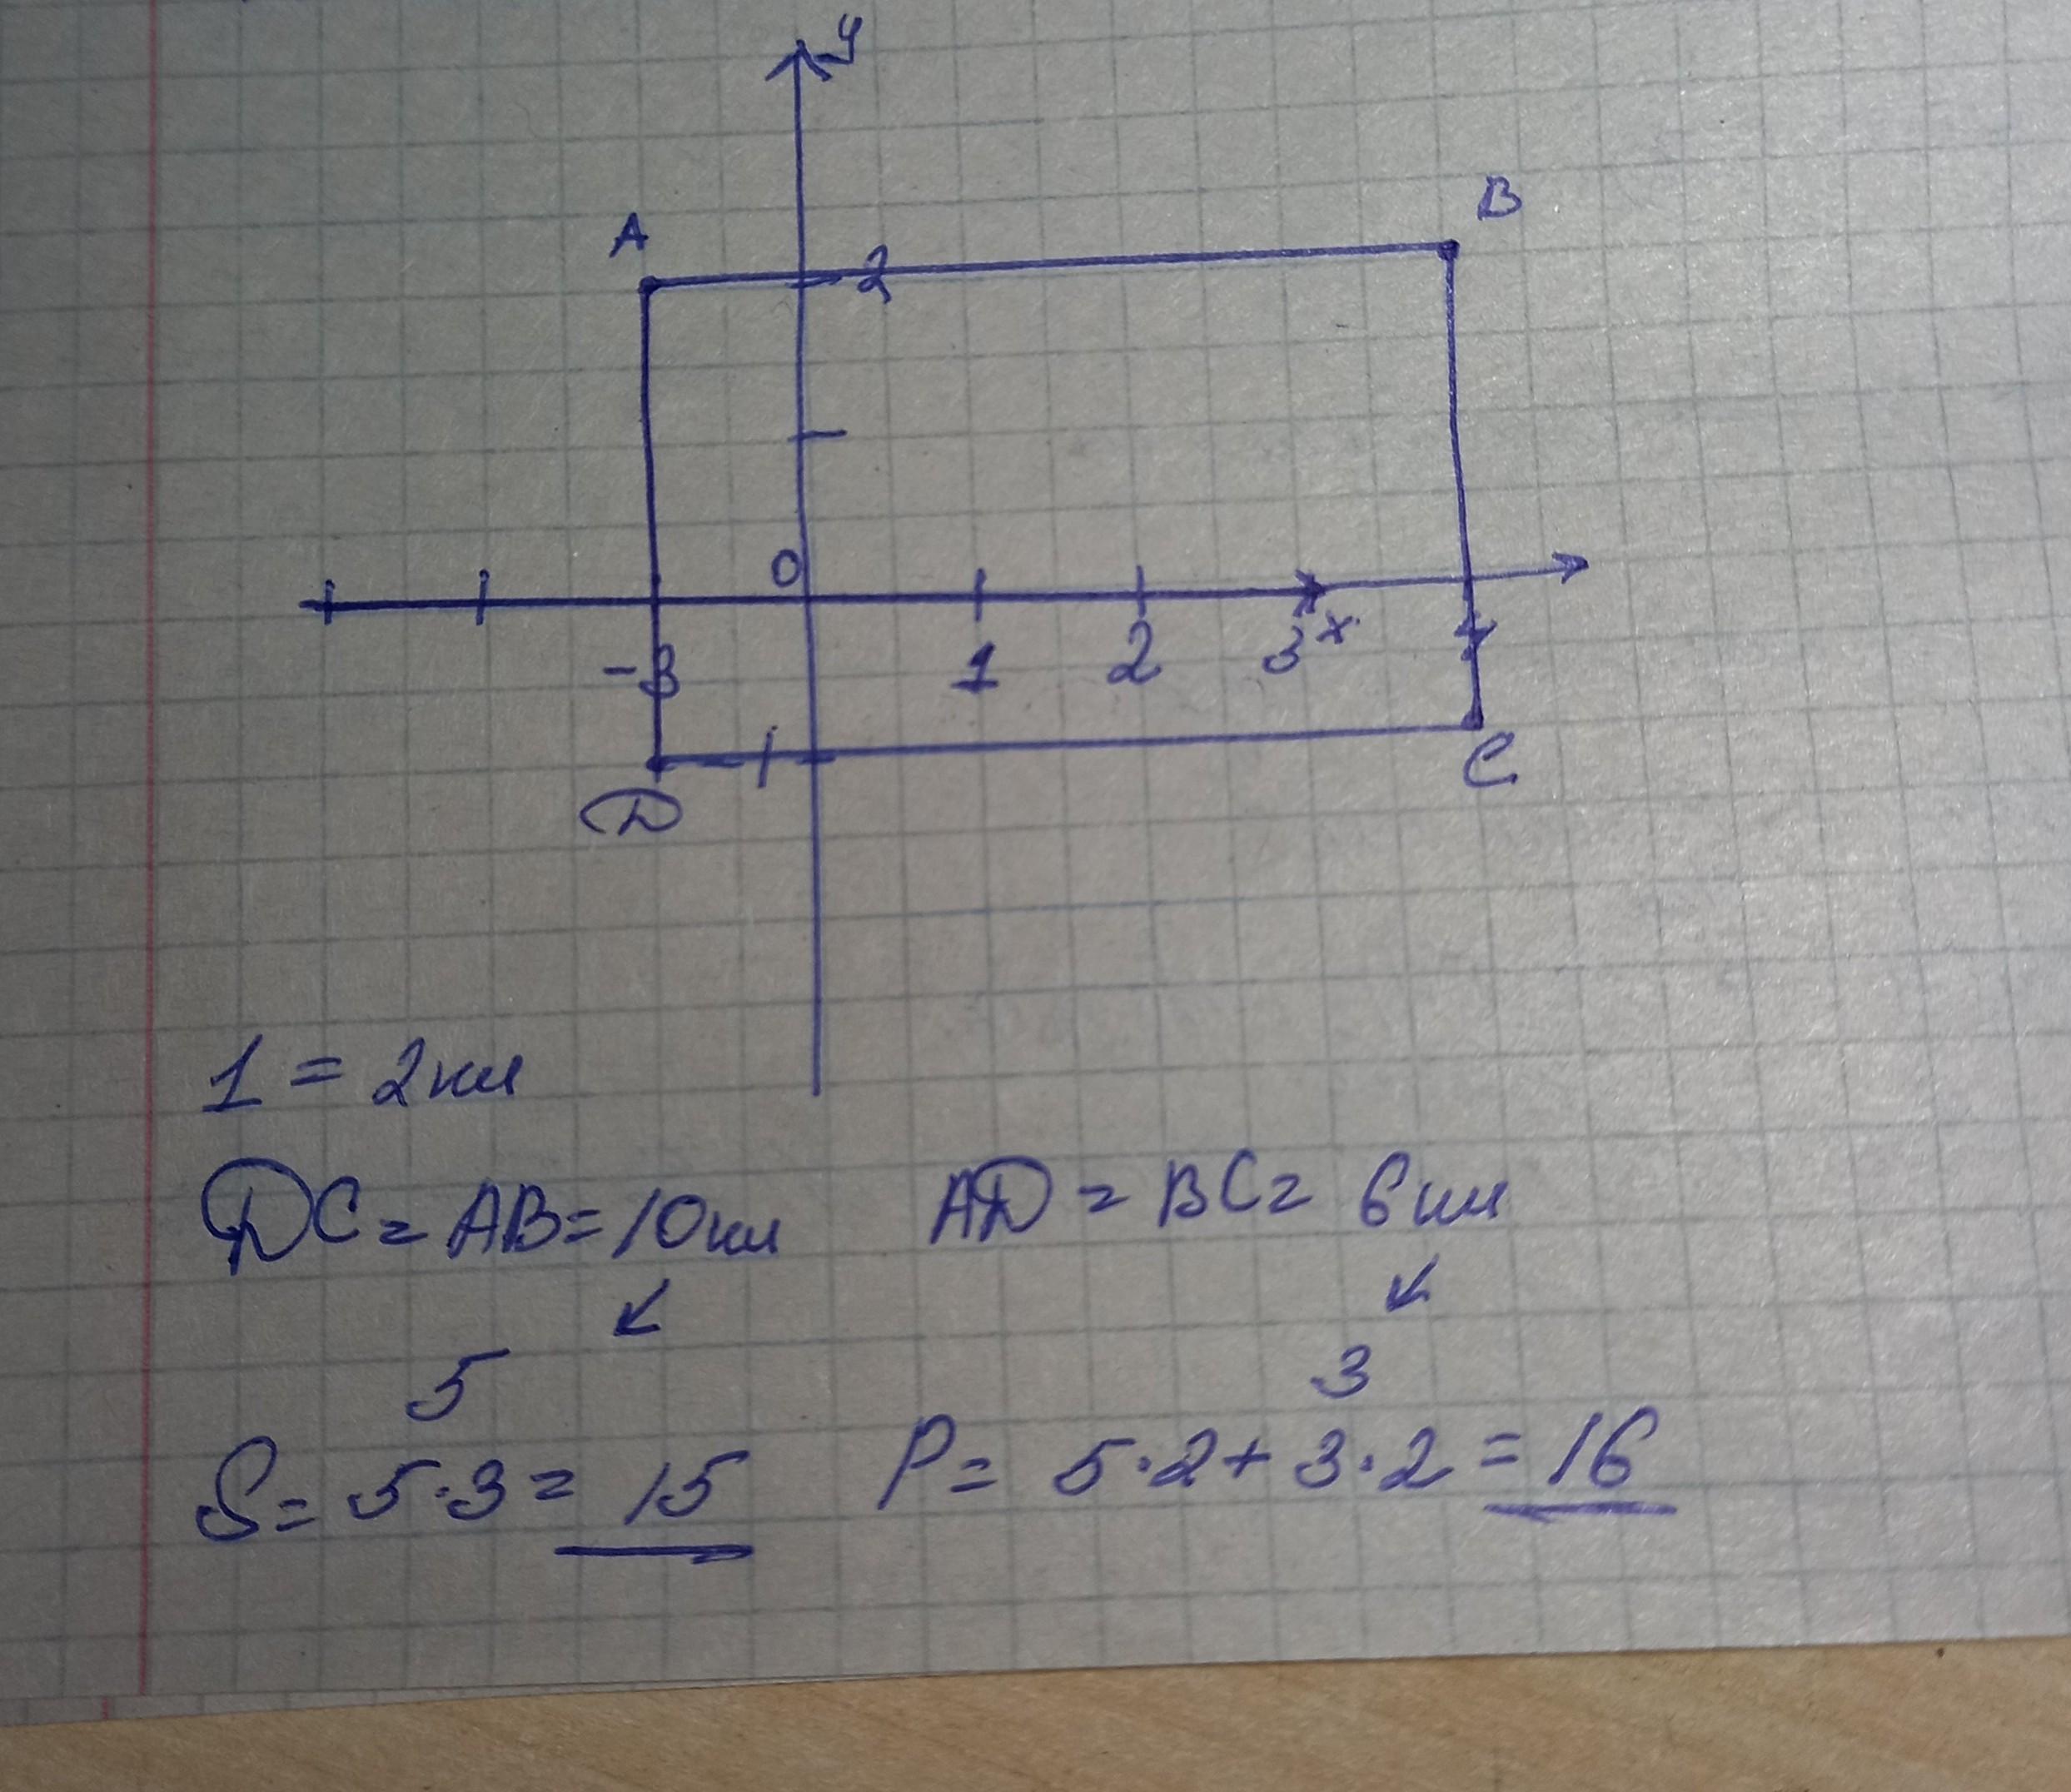 y
B
A
2
0
-3 1 2 3 x 4
-1
C
D
1 = 2км
DC = AB = 10км AD = BC = 6км
↙ ↙
5 3
S = 5·3 = 15 P = 5·2 + 3·2 = 16